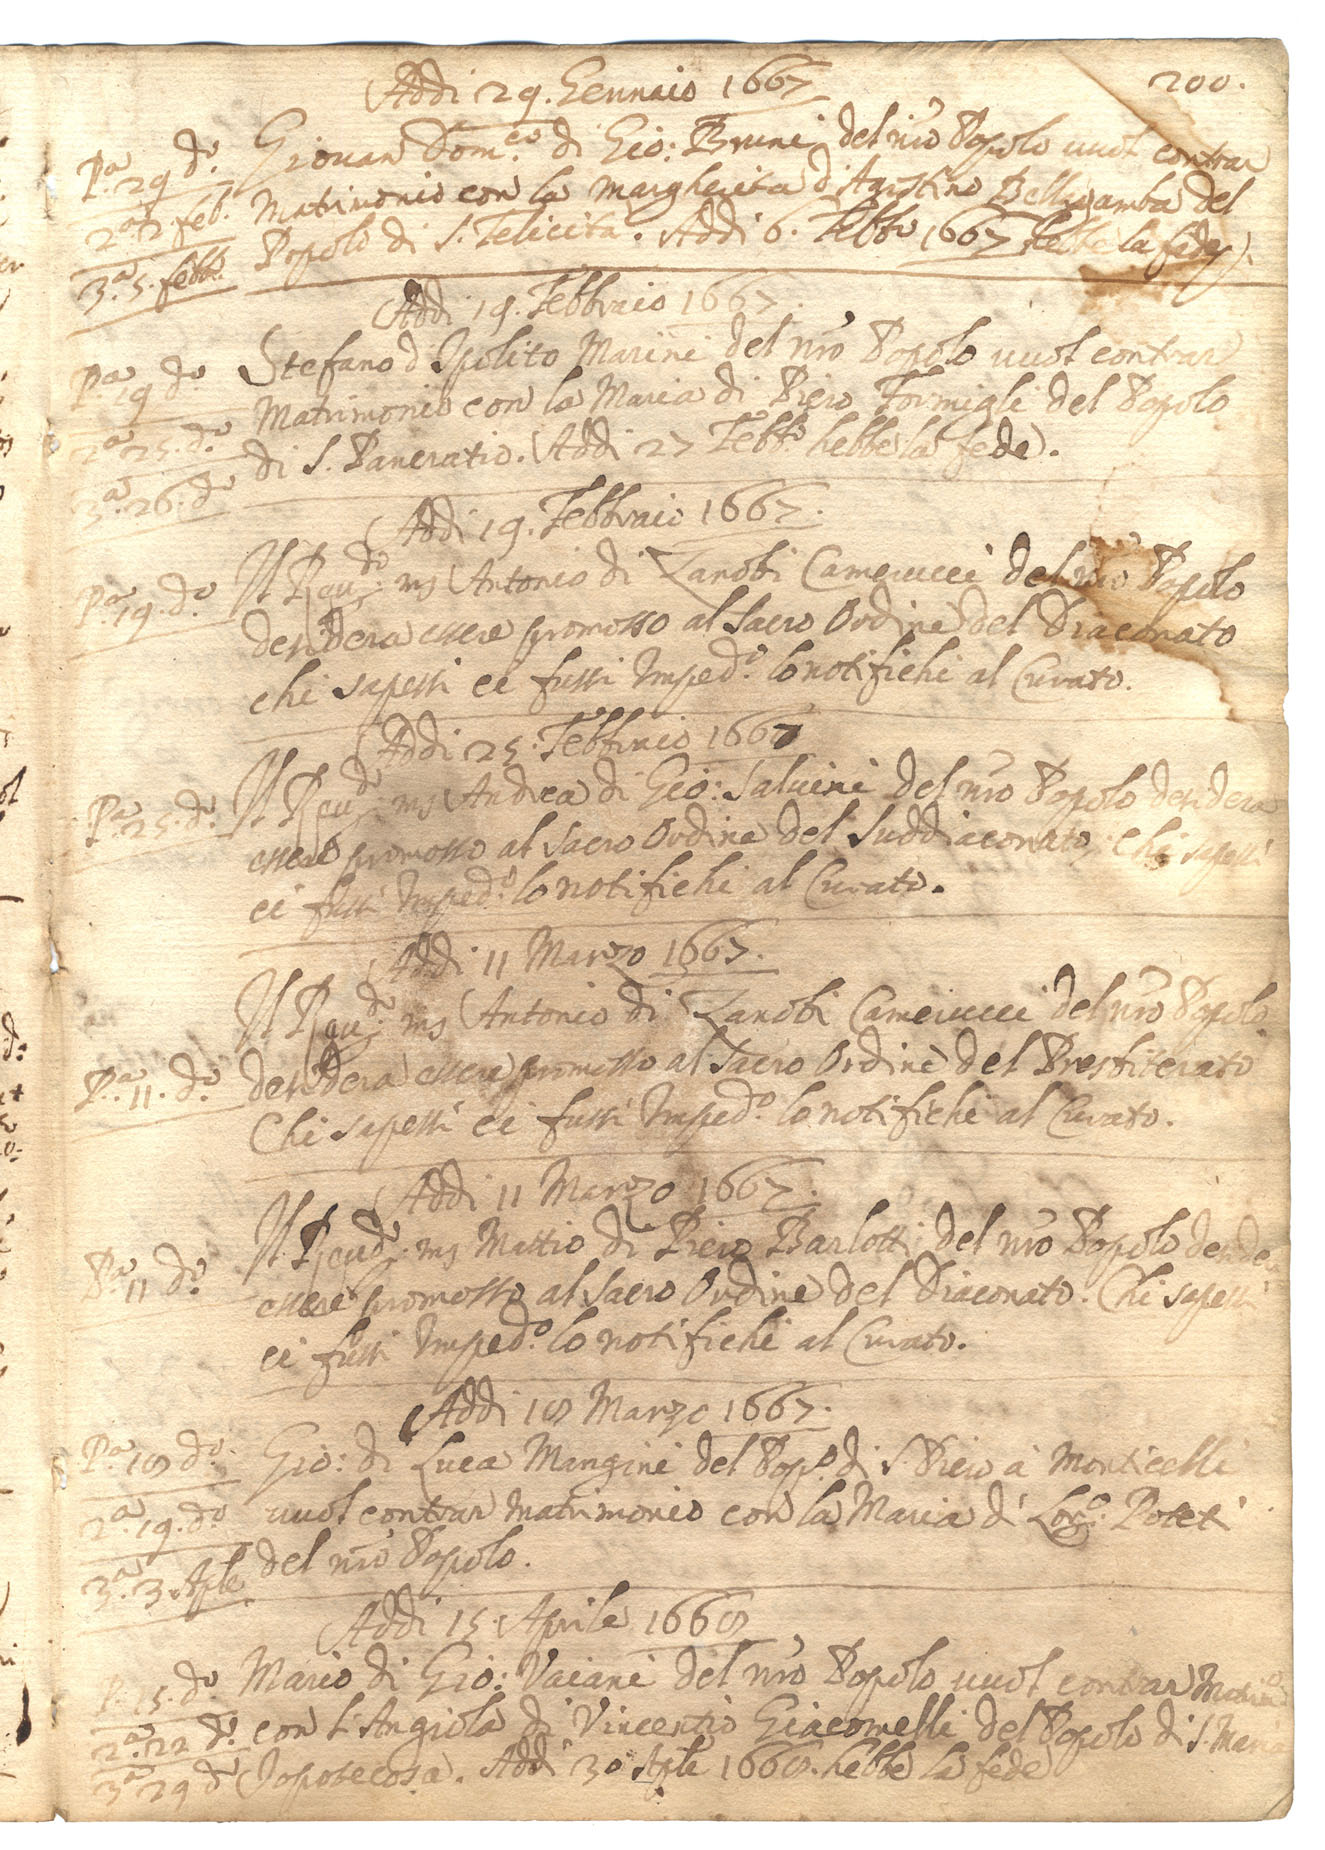 200.
Addi 29. Gennaio 1667
Pa. 29 do. Giovan Dom.co di Gio: Bruni del nro Popolo vuol contrar
2a. 2 feb. Matrimonio con la Margherita d'Agostino Bellagamba del
3a. 5. febb. Popolo di S. Felicita. Addi 6. Febbo 1667 hebbe la fede).
Addi 19. Febbraio 1667.
Pa. 19 do Stefano d'Ipolito Marini del nro Popolo vuol contrar
Matrimonio con la Maria di Piero Formigli del Popolo
2a 25. do. di S. Pancratio. (Addi 27 Febb.o hebbe la fede).
3a. 26. do
Addi 19. Febbraio 1667.
Pa. 19. do. Il Reud.do ms Antonio di Zanobi Cameiucci del nro Popolo
desidera essere promosso al Sacro Ordine del Diaconato
chi sapessi ci fussi Imped.o lo notifichi al Curato.
Addi 25. Febbraio 1667
Pa. 25. do. Il Reud.do ms Andrea di Gio: Salvini del nro Popolo desidera
essere promosso al Sacro Ordine del Suddiaconato, Chi sapessi
ci fussi Imped.o lo notifichi al Curato.
Addi 11 Marzo 1667.
Il Reud.do ms Antonio di Zanobi Cameiucci del nro Popolo
Pa. 11. do. desidera essere promosso al Sacro Ordine del Presbiterato
Chi sapessi ci fussi Imped.o lo notifichi al Curato.
Addi 11 Marzo 1667.
Pa. 11 do. Il Reud.do ms Mattio di Piero Barlotti del nro Popolo desidera
essere promosso al Sacro Ordine del Diaconato. Chi sapessi
ci fussi Imped.o lo notifichi al Curato.
Addi 18 Marzo 1667.
Pa. 18 do. Gio: di Luca Mangini del Pop.o di S. Piero à Monticelli
2a. 19. do. vuol contrar matrimonio con la Maria di Lor.o Poteti
3a. 3. Aple del nro Popolo.
Addi 15 Aprile 1668
P. 15. do. Mario di Gio: Vaiani del nro Popolo vuol contrar Matrim.o
2a. 22 do. con l'Angiola di Vincentio Giacomelli del Popolo di S. Maria
3a 29 do Inpotecosa. Addi 30 Aple 1668. hebbe la fede